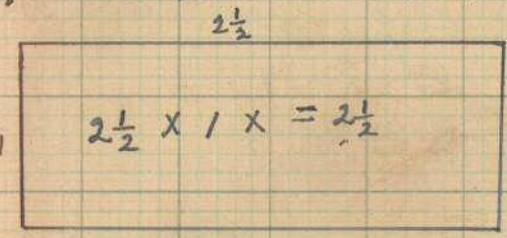 2½
2½ × 1 × = 2½